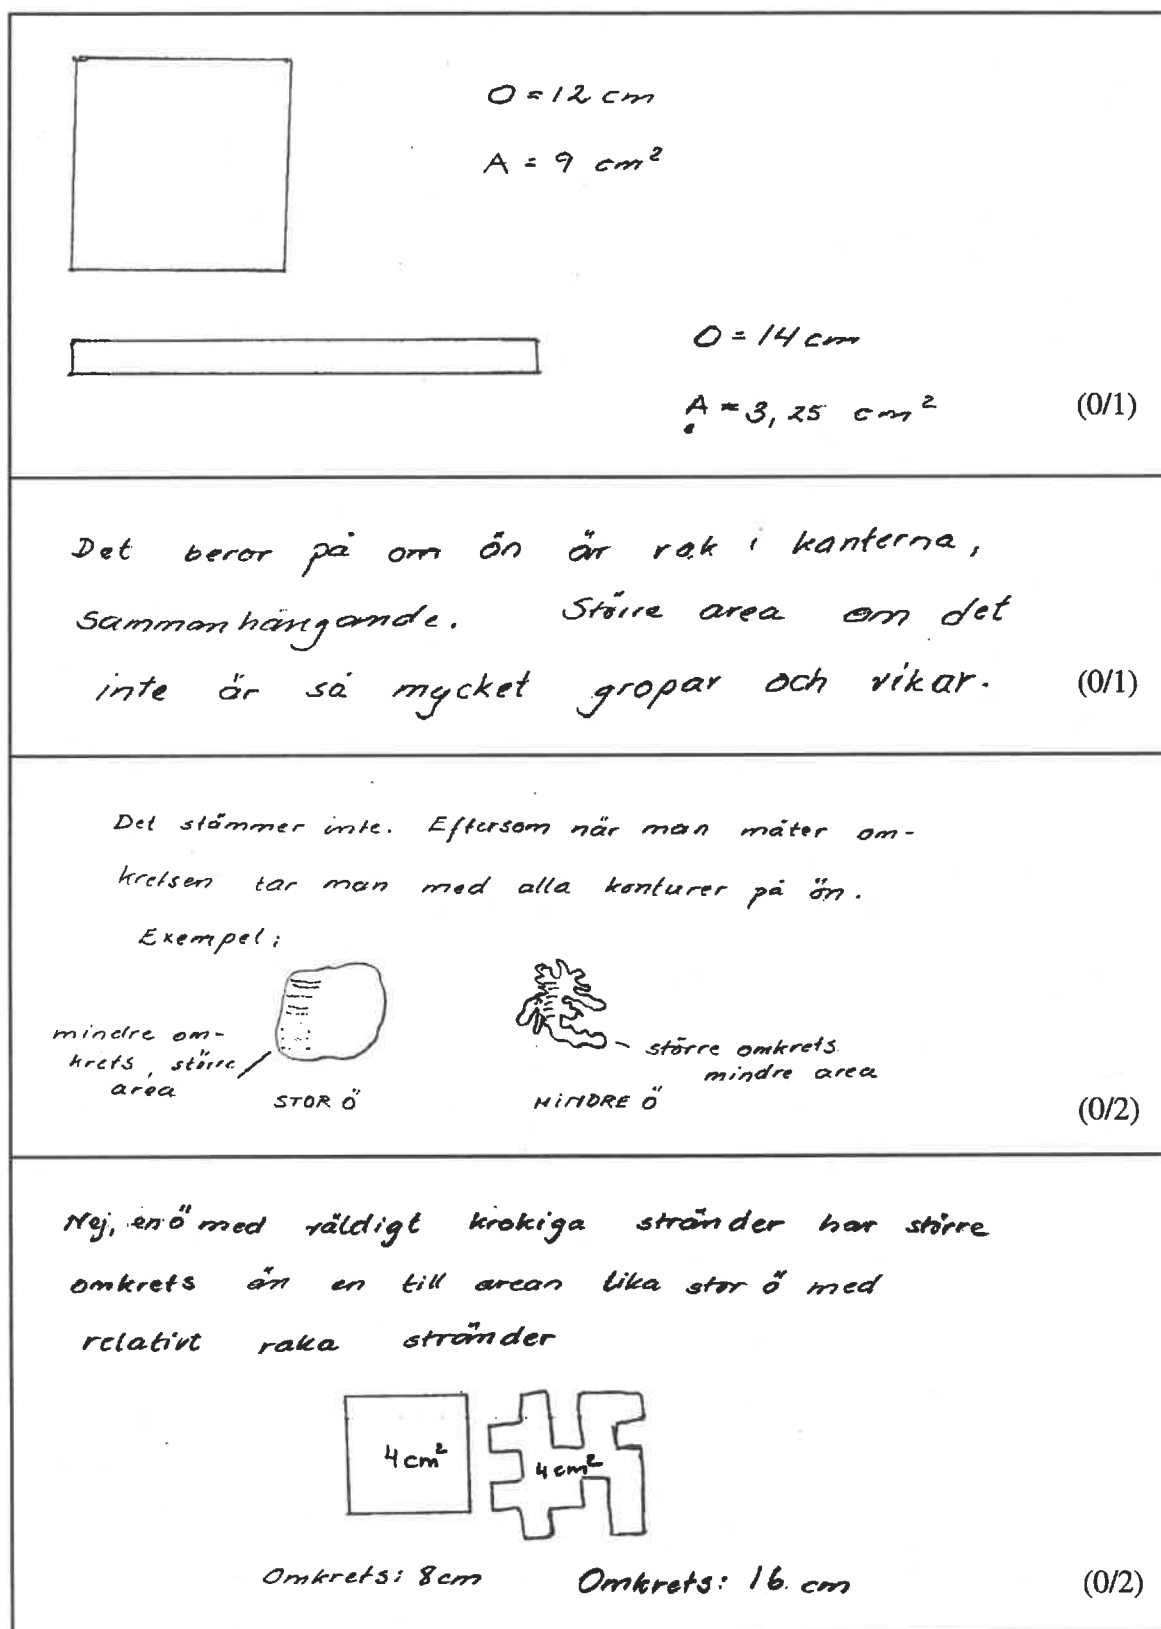 O = 12 cm
A = 9 cm²
O = 14 cm
A = 3,25 cm²
(0/1)
Det beror på om ön är rak i kanterna,
sammanhängande. Större area om det
inte är så mycket gropar och vikar.
(0/1)
Det stämmer inte. Eftersom när man mäter om-
kretsen tar man med alla konturer på ön.
Exempel:
mindre om-
krets, större
area
STOR Ö
större omkrets
mindre area
MINDRE Ö
(0/2)
Nej, en ö med väldigt krokiga stränder har större
omkrets än en till arean lika stor ö med
relativt raka stränder
4 cm²
4 cm²
Omkrets: 8 cm
Omkrets: 16 cm
(0/2)